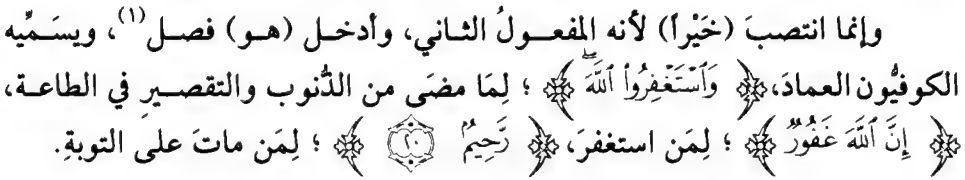 وإنما انتصبَ (خَيْراً) لأنه المفعولُ الثاني، وأدخل (هو) فصل(١)، ويسَمِّيه
الكوفيُّون العمادَ، ﴿ وَٱسْتَغْفِرُواْ ٱللَّهَۖ ﴾ ؛ لِمَا مضَى من الذُّنوب والتقصيرِ في الطاعة،
﴿ إِنَّ ٱللَّهَ غَفُورٌ ﴾ ؛ لِمَن استغفرَ، ﴿ رَّحِيمٌۢ ٢٠ ﴾ ؛ لِمَن ماتَ على التوبةِ.